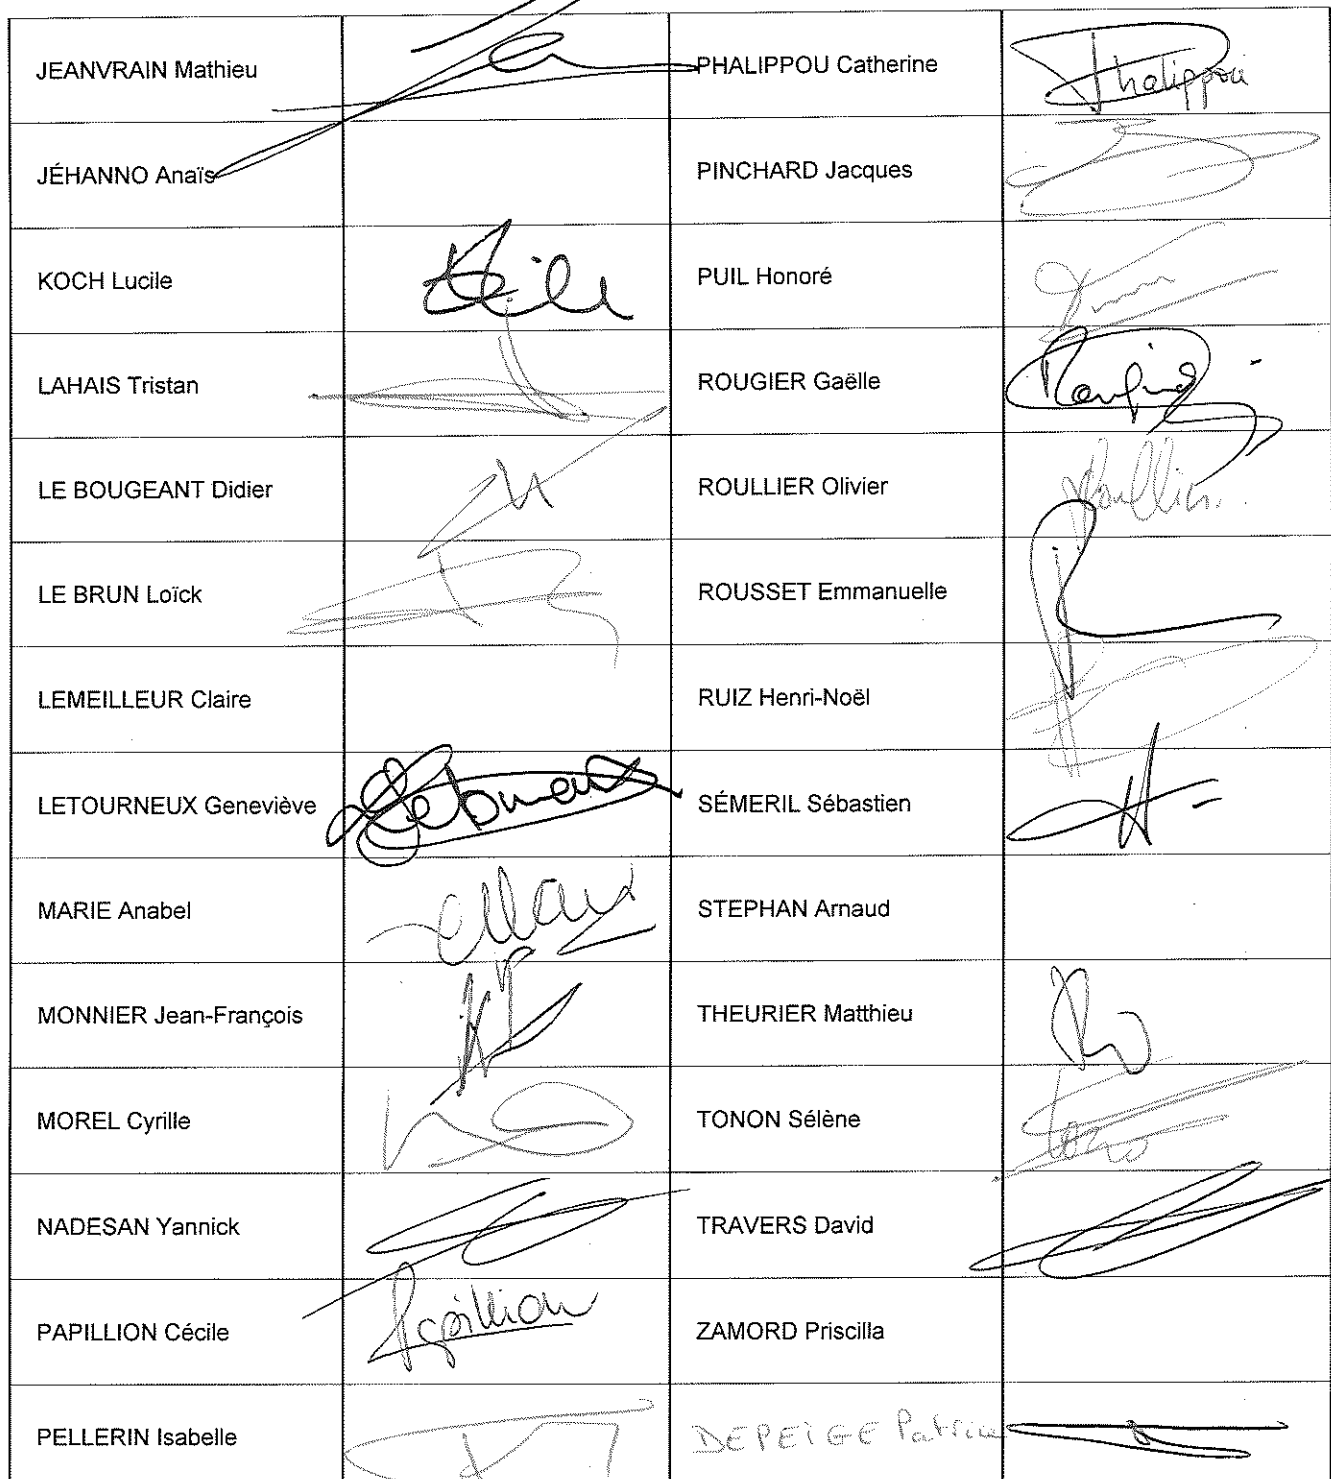 JEANVRAIN Mathieu
PHALIPPOU Catherine
Phalippou
JÉHANNO Anaïs
PINCHARD Jacques
KOCH Lucile
PUIL Honoré
LAHAIS Tristan
ROUGIER Gaëlle
Rougier
LE BOUGEANT Didier
ROULLIER Olivier
Roullier
LE BRUN Loïck
ROUSSET Emmanuelle
LEMEILLEUR Claire
RUIZ Henri-Noël
LETOURNEUX Geneviève
SÉMERIL Sébastien
MARIE Anabel
STEPHAN Arnaud
MONNIER Jean-François
THEURIER Matthieu
MOREL Cyrille
TONON Sélène
NADESAN Yannick
TRAVERS David
PAPILLION Cécile
Papillion
ZAMORD Priscilla
PELLERIN Isabelle
DEPEIGE Patrice